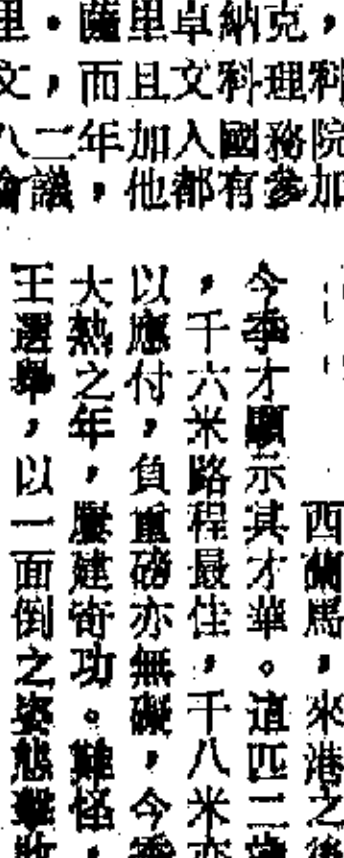 里・薩里卓納克，
文，而且文科理科
八二年加入國務院
會議，他都有參加
西蘭馬，來港之後
今季才顯示其才華。這匹二歲
，千六米路程最佳，千八米亦
以應付，負重磅亦無礙，今季
大熱之年，屢建奇功。難怪
王選舉，以一面倒之姿態擊敗